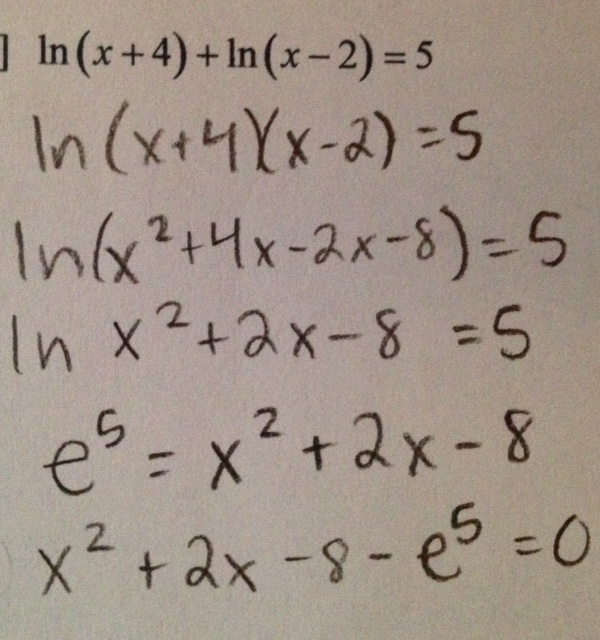 ] ln(x+4)+ln(x−2)=5
ln(x+4)(x-2)=5
ln(x²+4x-2x-8)=5
ln x²+2x-8 =5
e⁵=x²+2x-8
x²+2x-8-e⁵=0